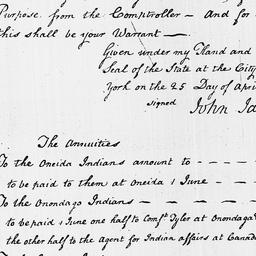 Purpose. from the Comptroller — And for
this shall be your Warrant —
Given under my Hand and
Seal of the State at the City
York on the 25 Day of Apri
signed
John Ja
The Annuities
To the Oneida Indians amount to - - - -
to be paid to them at Oneida 1 June - - -
To the Onondago Indians — — — — —
to be paid 1 June one half to Comft Tyler at Onondaga
the other half to the Agent for Indian affairs at Canada